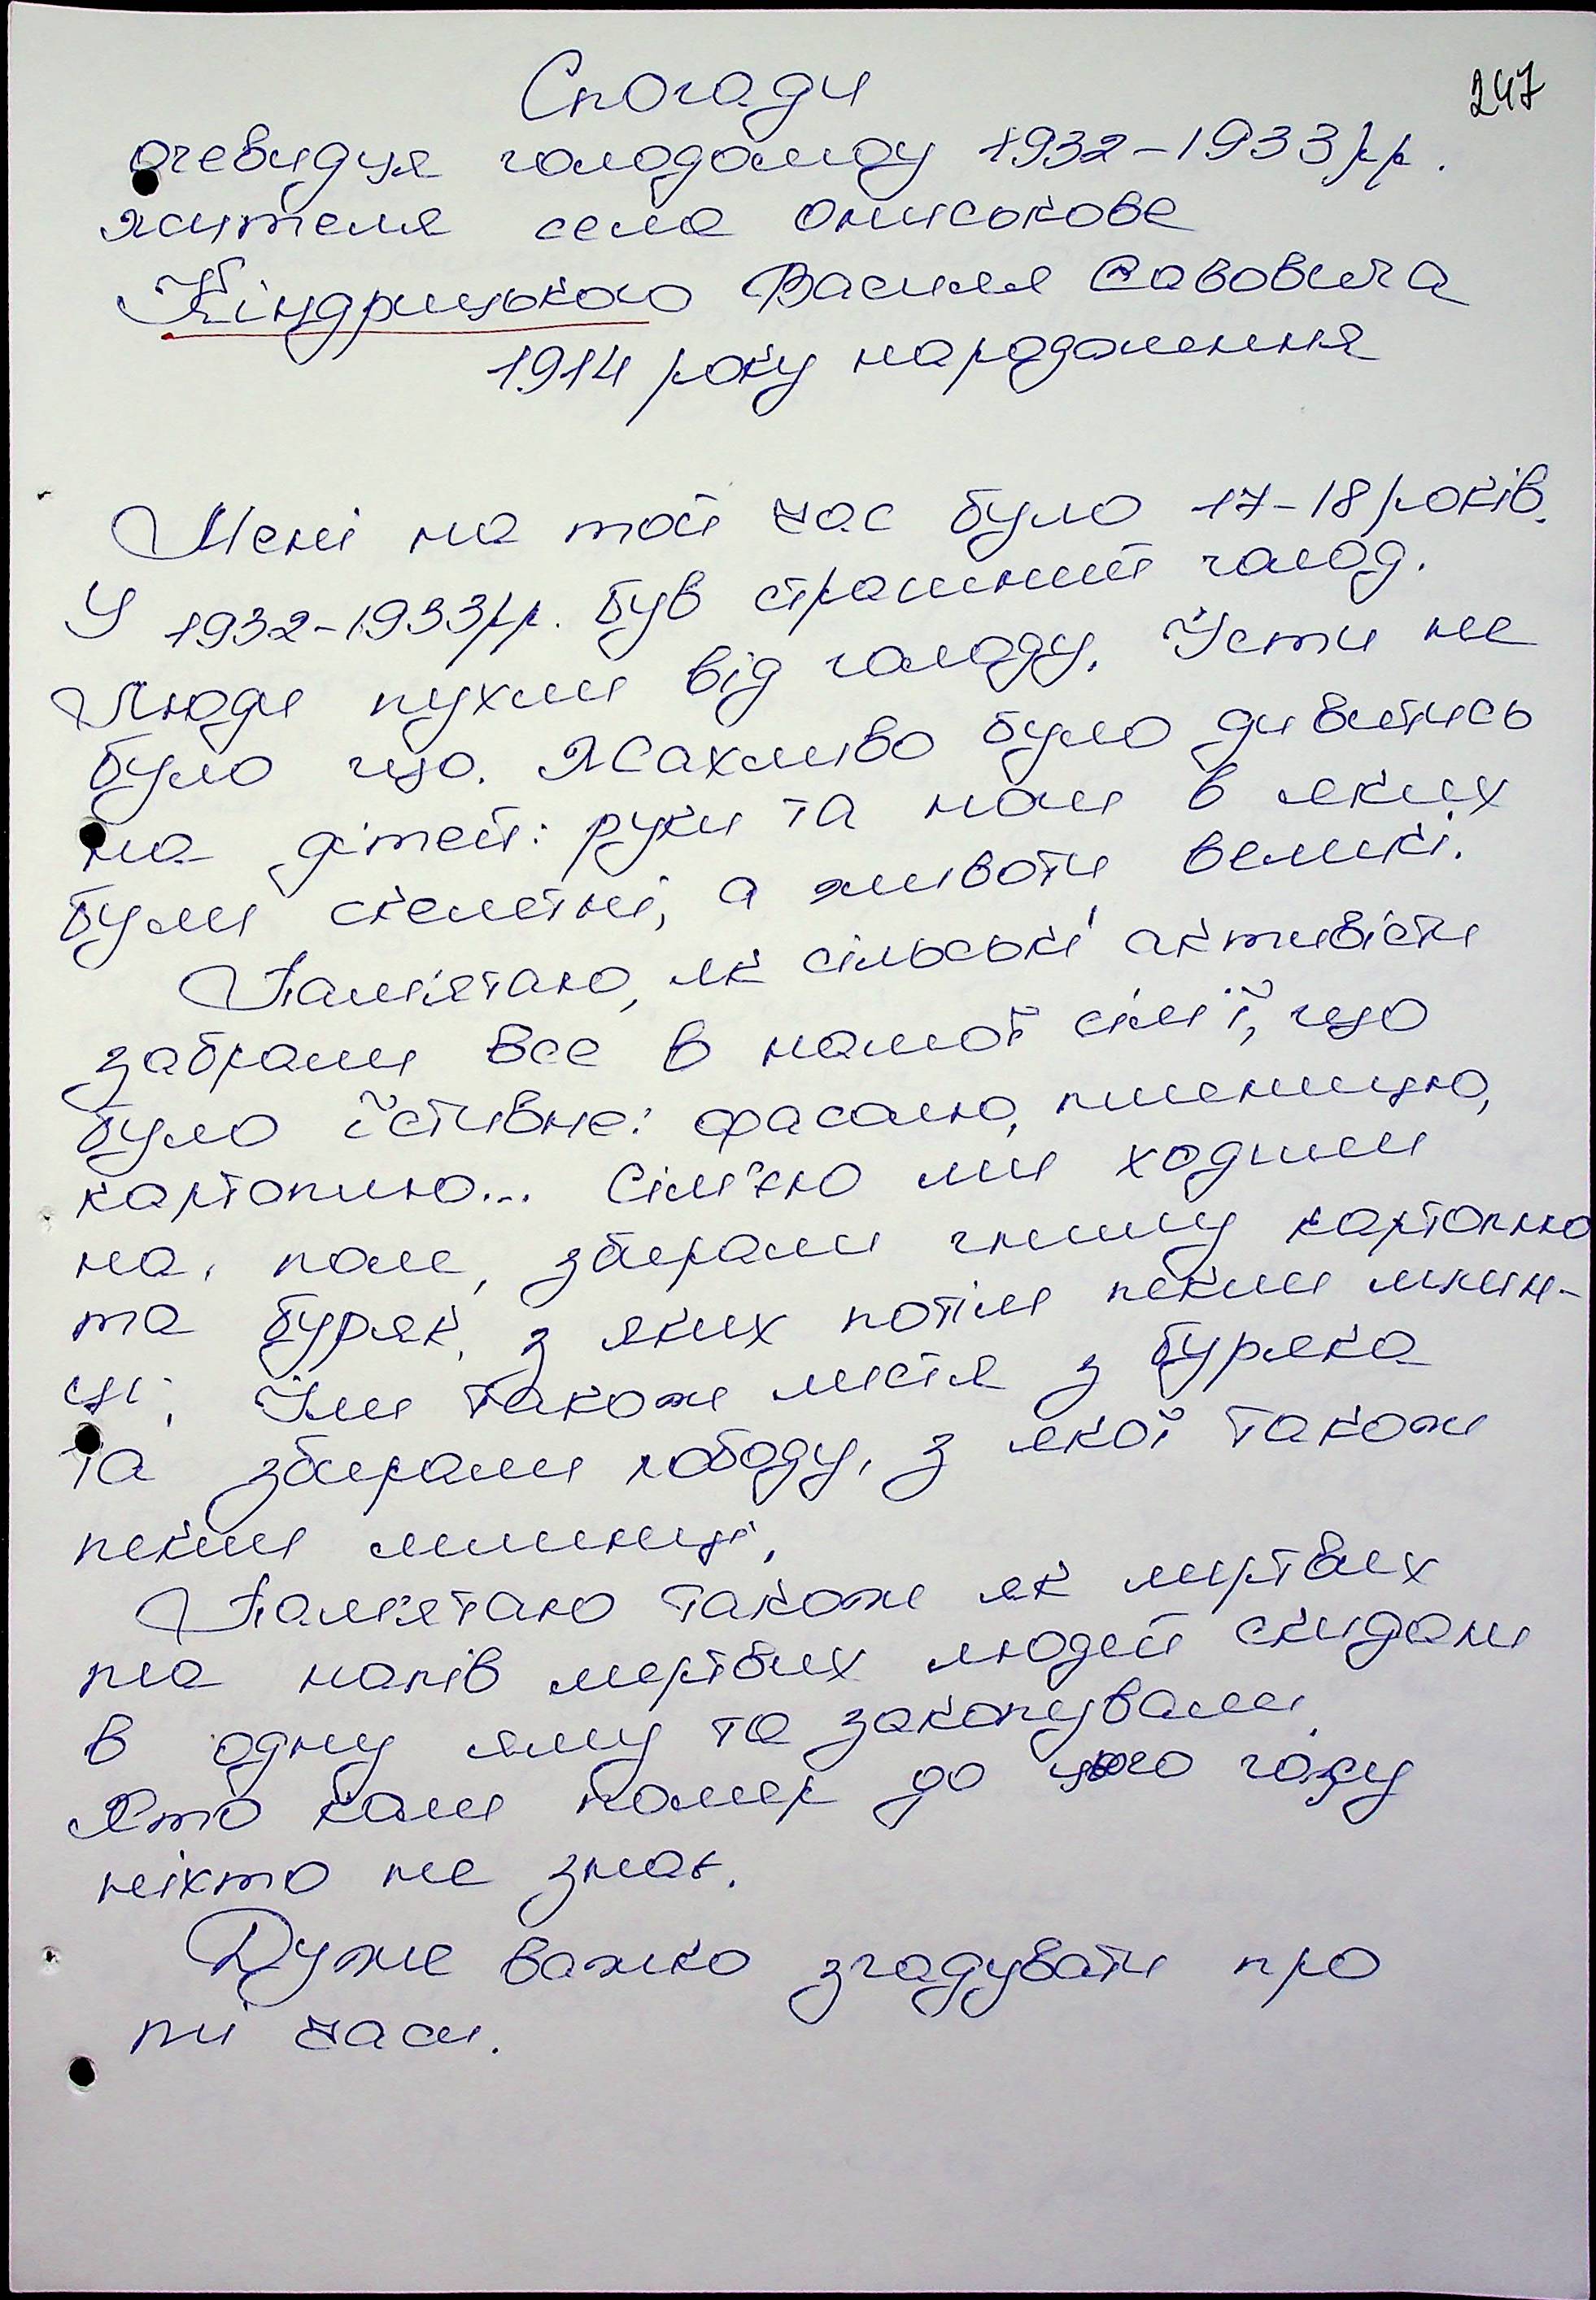 247
Спогади
очевидця голодомору 1932-1933рр.
жителя села Ониськове
Кіндрицького Василя Савовича
1914 року народження
Мені на той час було 17-18 років.
У 1932-1933рр. був страшний голод.
Люди пухли від голоду. Їсти не
було що. Жахливо було дивитись
на дітей: руки та ноги в яких
були скелетні, а животи великі.
Пам'ятаю, як сільські активісти
забрали все в нашої сім'ї, що
було їстивне: фасолю, пшеницю,
картоплю... Сім'єю ми ходили
на поле, збирали гнилу картоплю
та буряк, з яких потім пекли млин-
ці. Їли також листя з буряка
та збирали лободу, з якої також
пекли млинці.
Пам'ятаю також як мертвих
та напів мертвих людей скидали
в одну яму та закопували.
Хто коли помер до цього часу
ніхто не знає.
Дуже важко згадувати про
ті часи.